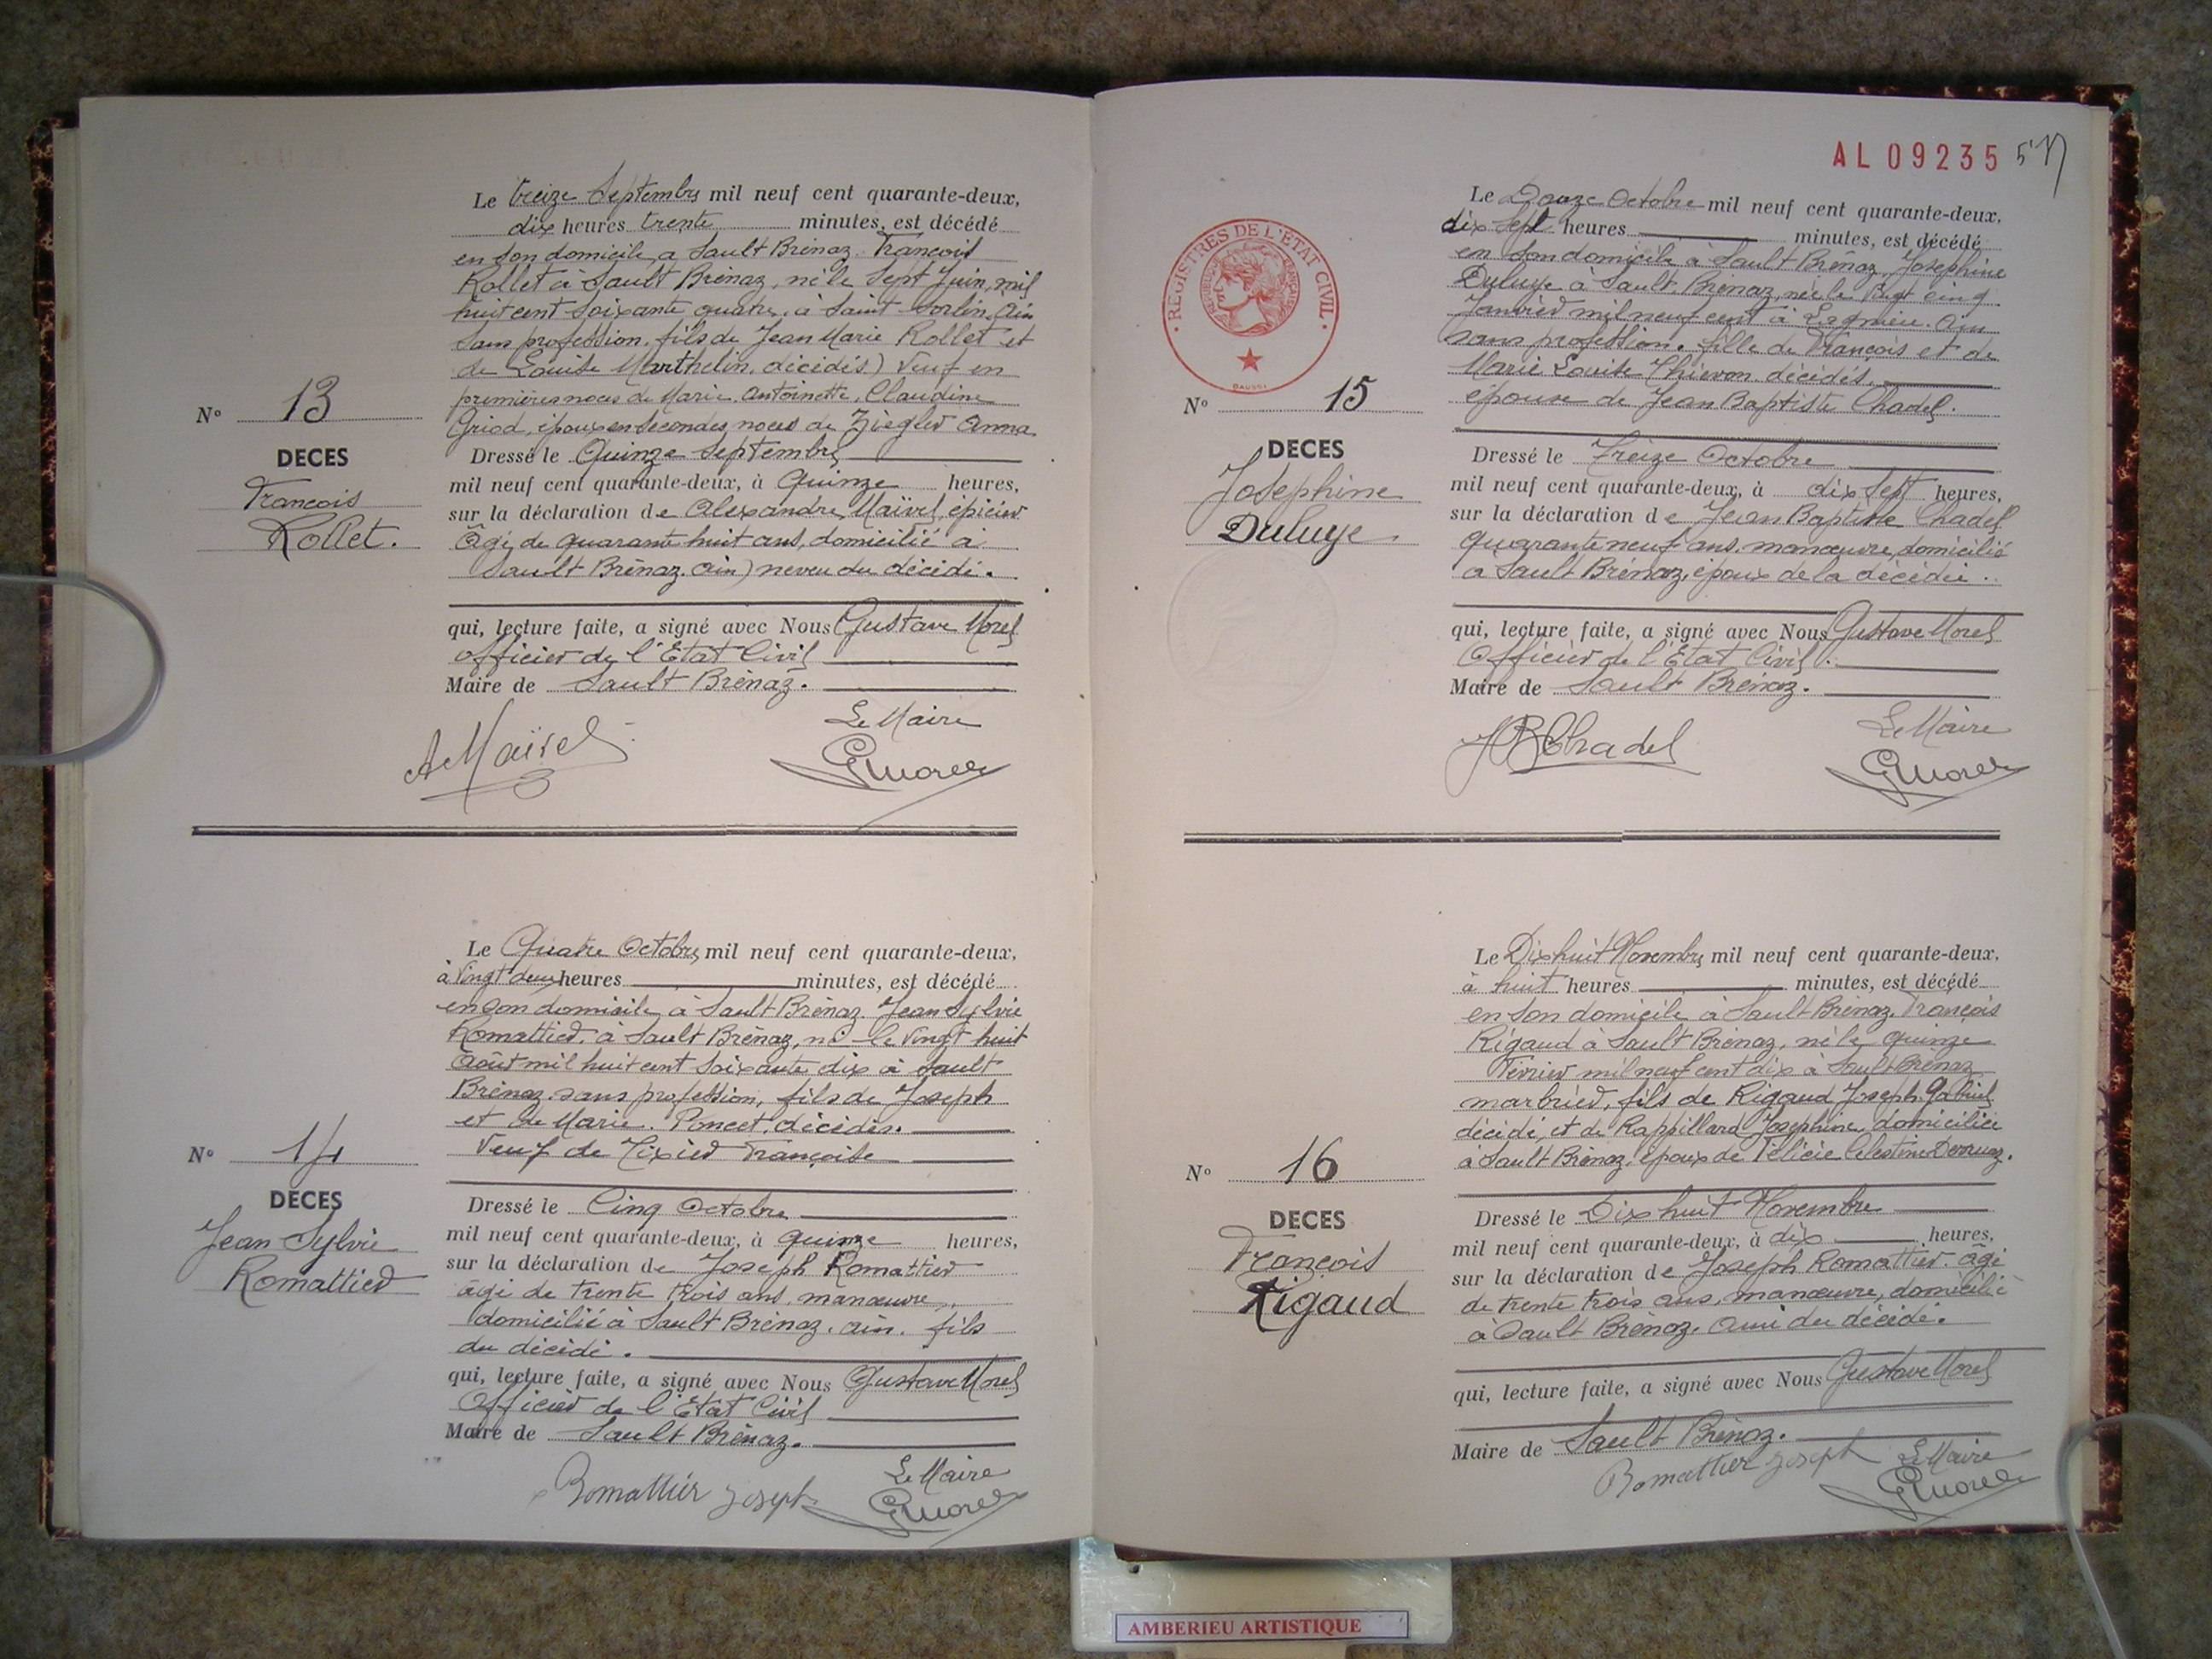 Le treize Septembre mil neuf cent quarante-deux,
dix heures trente minutes, est décédé
en son domicile a Sault Brénaz François
Rollet à Sault Brénaz, né le Sept Juin, mil
huit cent soixante quatre, à Saint Sorlin. Ain
sans profession, fils de Jean Marie Rollet et
de Louise Marthelin, décédés) Veuf en
premières noces de Marie. Antoinette, Claudine
Griod, époux en secondes noces de Ziegler Anna
N° 13
DECES
François
Rollet.
Dressé le Quinze Septembre
mil neuf cent quarante-deux, à Quinze heures,
sur la déclaration de Alexandre Maïvel, épicier
Âgé de quarante huit ans, domicilié a
Sault Brénaz. Ain) neveu du décédé.
qui, lecture faite, a signé avec Nous Gustave Morel
officier de l'Etat Civil
Maire de Sault Brénaz.
Le Maire
GMorel
Le Quatre Octobre mil neuf cent quarante-deux,
à vingt deux heures minutes, est décédé
en son domicile à Sault Brénaz Jean Sylvie
Romattier à Sault Brénaz, né le Vingt huit
Août mil huit cent soixante dix à Sault
Brénaz sans profession, fils de Joseph
et de Marie. Poncet. décédés.
Veuf de Tixier Françoise
N° 14
DECES
Jean Sylvie
Romattier
Dressé le Cinq Octobre
mil neuf cent quarante-deux, à quinze heures,
sur la déclaration de Joseph Romattier
âgé de trente trois ans, manœuvre,
domicilié à Sault Brénaz. ain. fils
du décédé.
qui, lecture faite, a signé avec Nous Gustave Morel
Officier de l'Etat Civil
Maire de Sault Brénaz.
Romattier Joseph
Le Maire
GMorel
AL 09235
REGISTRES DE L'ETAT CIVIL
Le Douze Octobre mil neuf cent quarante-deux,
dix Sept heures minutes, est décédé
en son domicile à Sault Brénaz, Josephine
Duluye à Sault. Brénaz, née le Vingt cinq
Janvier mil neuf cent à Lagnieu. Ain
sans profession. fille de François et de
Marie Louise Thievon décédés.
épouse de Jean Baptiste Chadel.
N° 15
DECES
Josephine
Duluye
Dressé le Treize Octobre
mil neuf cent quarante-deux, à dix Sept heures,
sur la déclaration de Jean Baptiste Chadel
quarante neuf ans. manœuvre, domicilié
a Sault Brénaz, époux de la décédée.
qui, lecture faite, a signé avec Nous Gustave Morel
Officier de l'Etat Civil.
Maire de Sault Brénaz.
JBChadel
Le Maire
GMorel
Le Dix huit Novembre mil neuf cent quarante-deux,
à huit heures minutes, est décédé
en son domicile à Sault Brénaz. François
Rigaud à Sault Brénaz, né le quinze
Février mil neuf cent dix à Sault Brénaz
marbrier, fils de Rigaud Joseph Gabriel
décédé, et de Rappillard Josephine, domiciliée
à Sault Brénaz, époux de Félicie Célestine
N° 16
DECES
François
Rigaud
Dressé le Dix huit Novembre
mil neuf cent quarante-deux, à dix heures,
sur la déclaration de Joseph Romattier. âgé
de trente trois ans, manœuvre, domicilié
à Sault Brénaz. Ami du décédé.
qui, lecture faite, a signé avec Nous Gustave Morel
Maire de Sault Brénaz.
Romattier Joseph
Le Maire
GMorel
AMBERIEU ARTISTIQUE